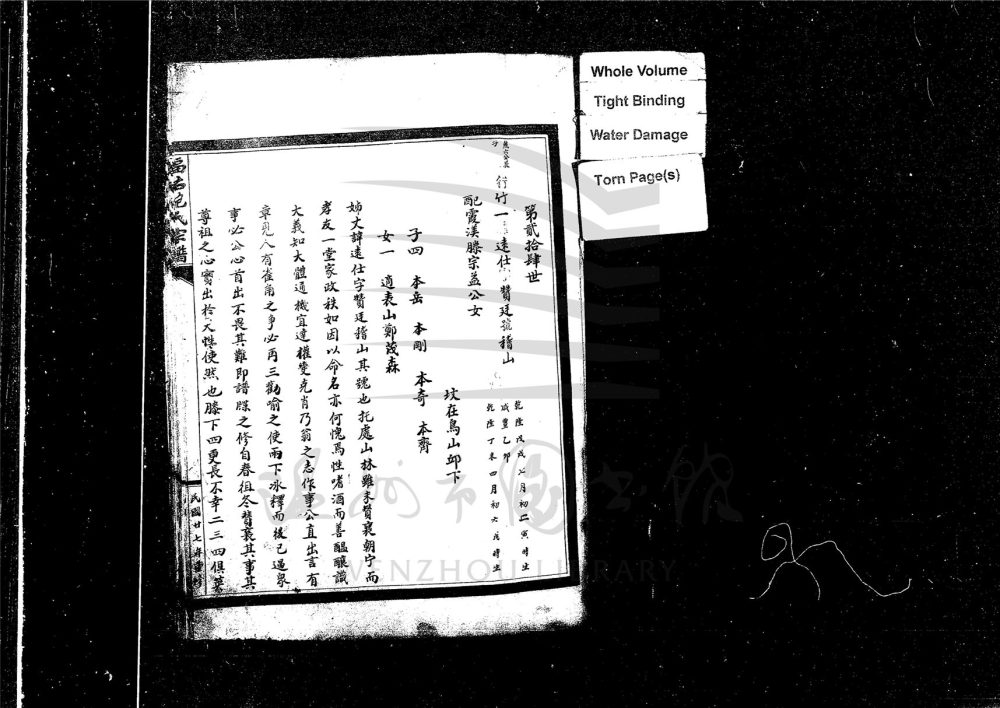 第貳拾肆世
行竹一 達仕 贊廷號稽山
乾隆戊戌七月初二寅時生
咸豐乙卯
乾隆丁未四月初六辰時生
配霞漢滕宗益公女
坟在鳥山邱下
子四 本岳 本剛 本奇 本齊
女一 適表山鄭茂森
姊丈諱達仕字贊廷稽山其號也托處山林雖未贊襄朝宁而
孝友一堂家政秩如因以命名亦何愧焉性嗜酒而善醞釀識
大義知大體通機宜達權變克肖乃翁之志作事公直出言有
章見人有雀角之爭必再三勸喻之使兩下冰釋而後已遇眾
事必公心首出不畏其難即譜牒之修自春徂冬贊襄其事其
尊祖之心實出於天性使然也膝下四更長不幸二三四俱
氏宗譜
民國廿七年重修
Whole Volume
Tight Binding
Water Damage
Torn Page(s)
溫州市圖書館
WENZHOU LIBRARY